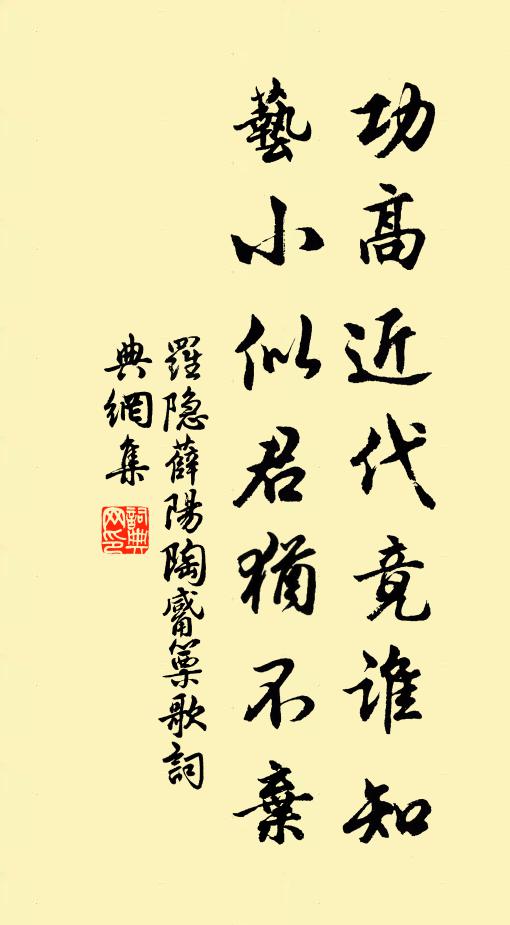 功高近代竟谁知
藝小似君猶不棄
羅隐薛陽陶觱篥歌詞
典網集
詞典
网印